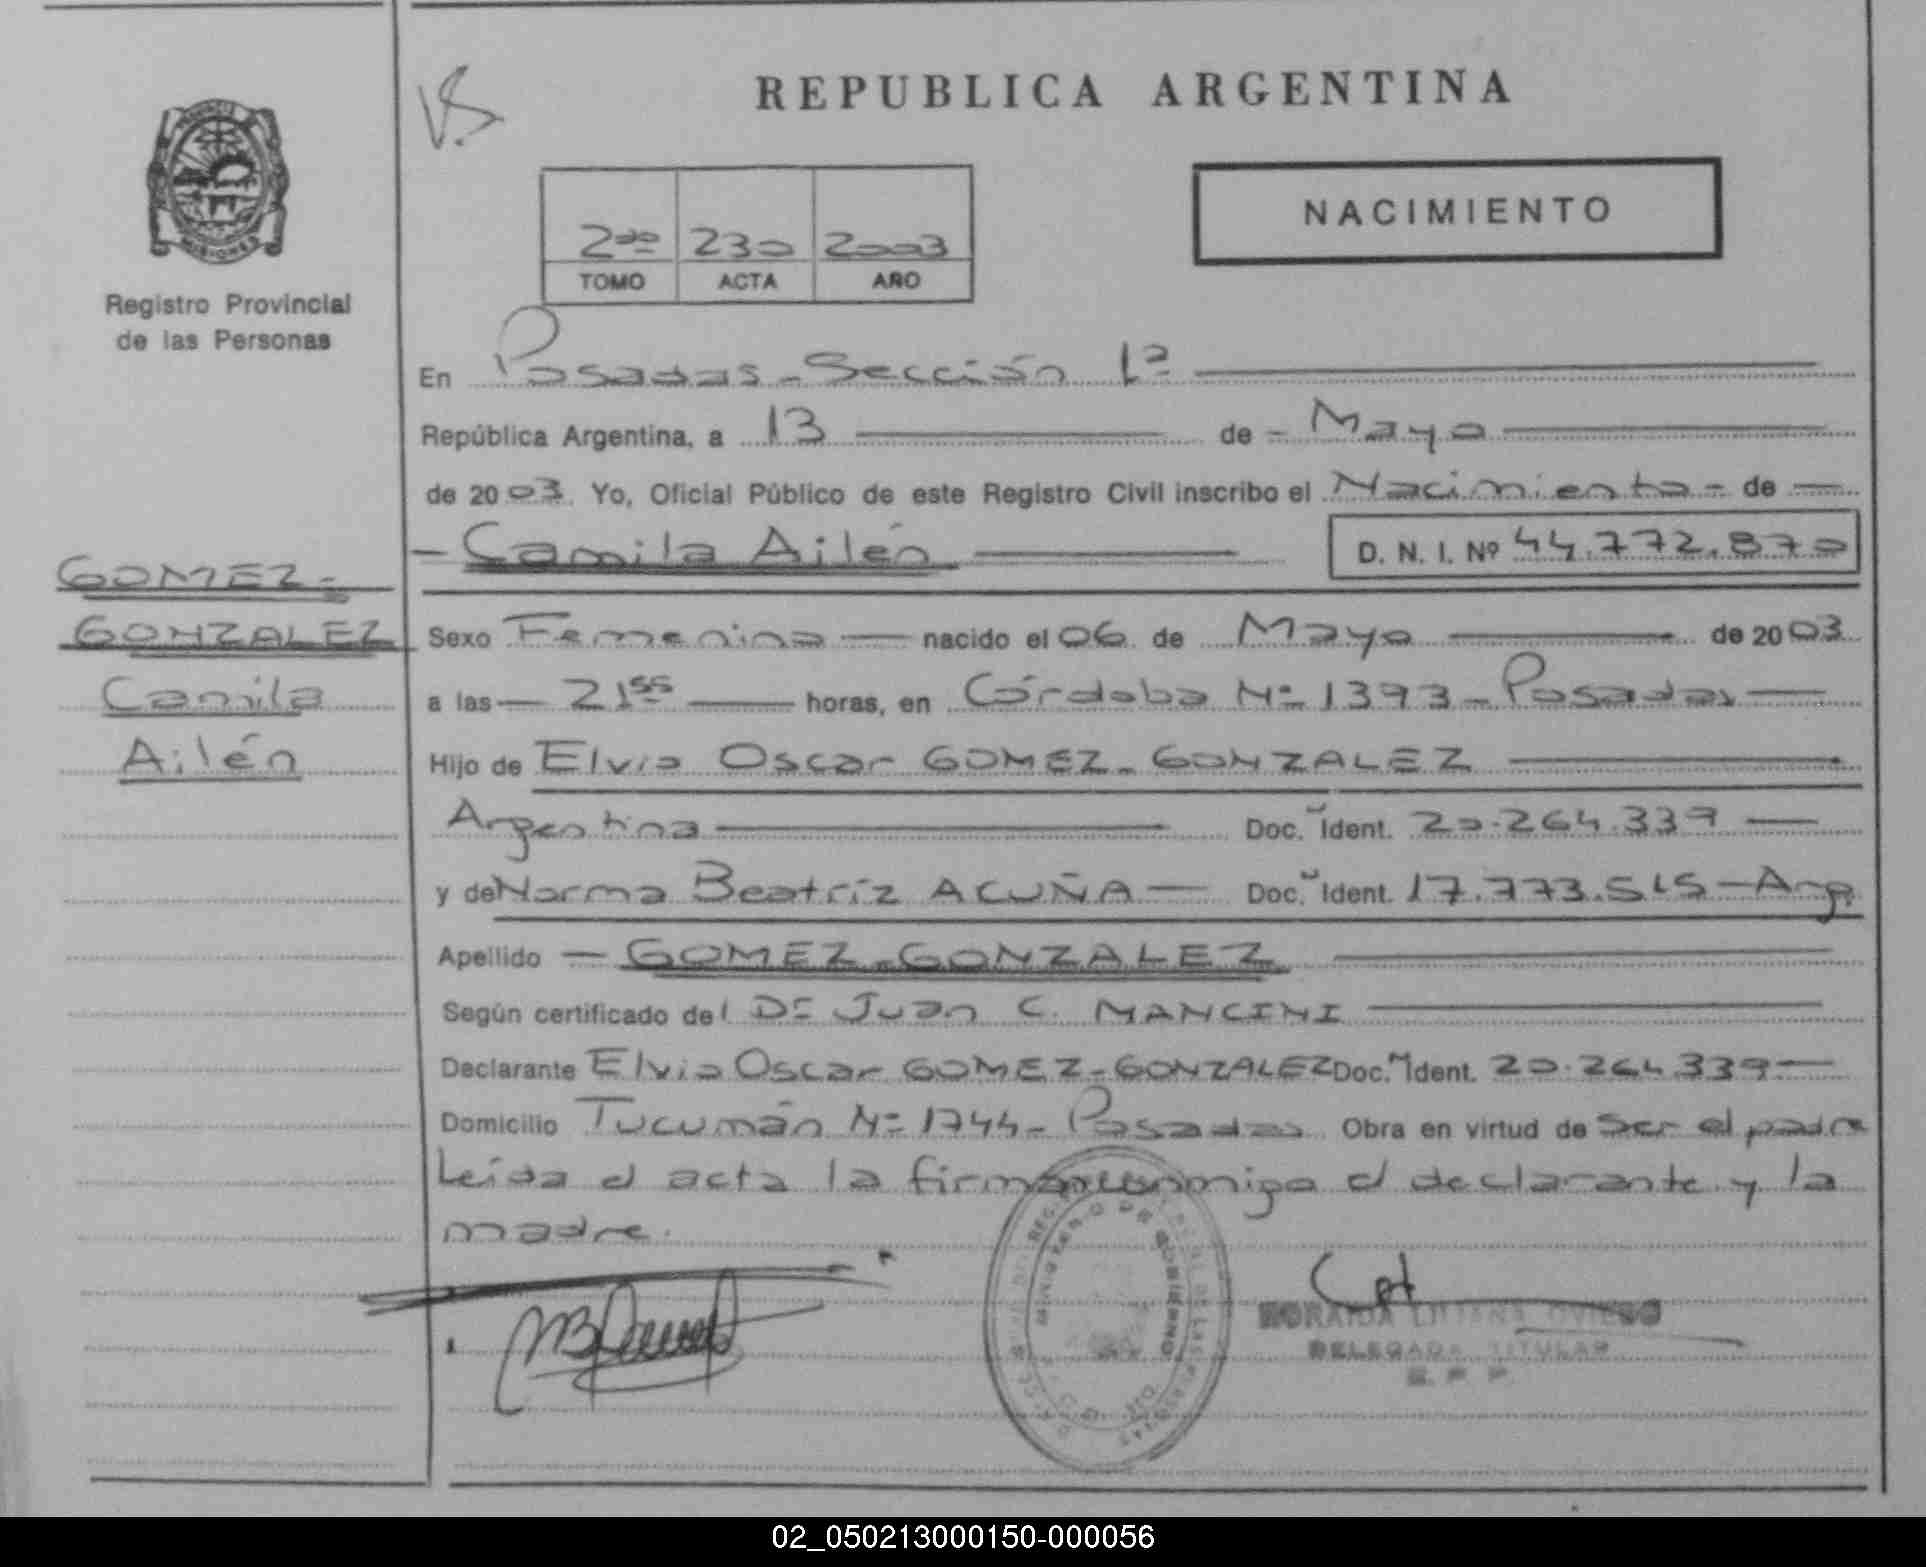 REPUBLICA ARGENTINA
NACIMIENTO
2do 230 2003
TOMO ACTA AÑO
Registro Provincial
de las Personas
GOMEZ-
GONZALEZ
Camila
Ailén
En Posadas - Sección 1ª
República Argentina, a 13 de - Mayo
de 2003. Yo, Oficial Público de este Registro Civil inscribo el Nacimiento - de
- Camila Ailén D. N. I. Nº 44.772.870
Sexo Femenino nacido el 06 de Mayo de 2003
a las 21 55 horas, en Córdoba Nº 1393 - Posadas
Hijo de Elvio Oscar GOMEZ - GONZALEZ
Argentina Doc. Ident. 20.264.339
y de Norma Beatríz ACUÑA Doc. Ident. 17.773.515 - Arg.
Apellido - GOMEZ - GONZALEZ
Según certificado del Dr Juan C. MANCINI
Declarante Elvio Oscar GOMEZ - GONZALEZ Doc. Ident. 20.264.339
Domicilio Tucumán Nº 1744 - Posadas Obra en virtud de ser el padre
Leída el acta la firman conmigo el declarante y la
madre.
DELEGADA TITULAR
02_050213000150-000056